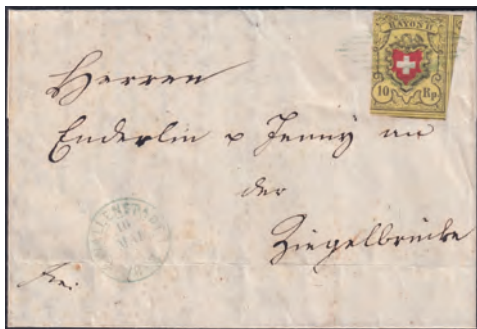 RAYON II
10 Rp.
Herren
Enderlin & Jenny an
der
Ziegelbrücke
WALLENSTADT
16
frei.